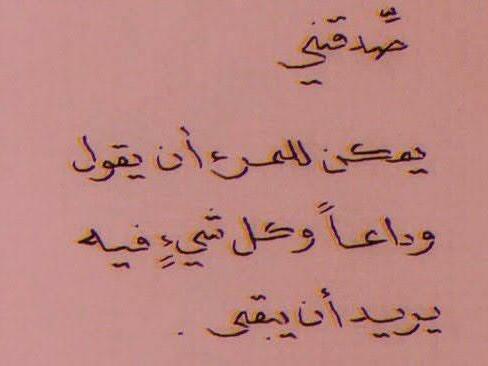 صّدقني
يمكن للمرء أن يقول
وداعاً وكل شيءٍ فيه
يريد أن يبقى .